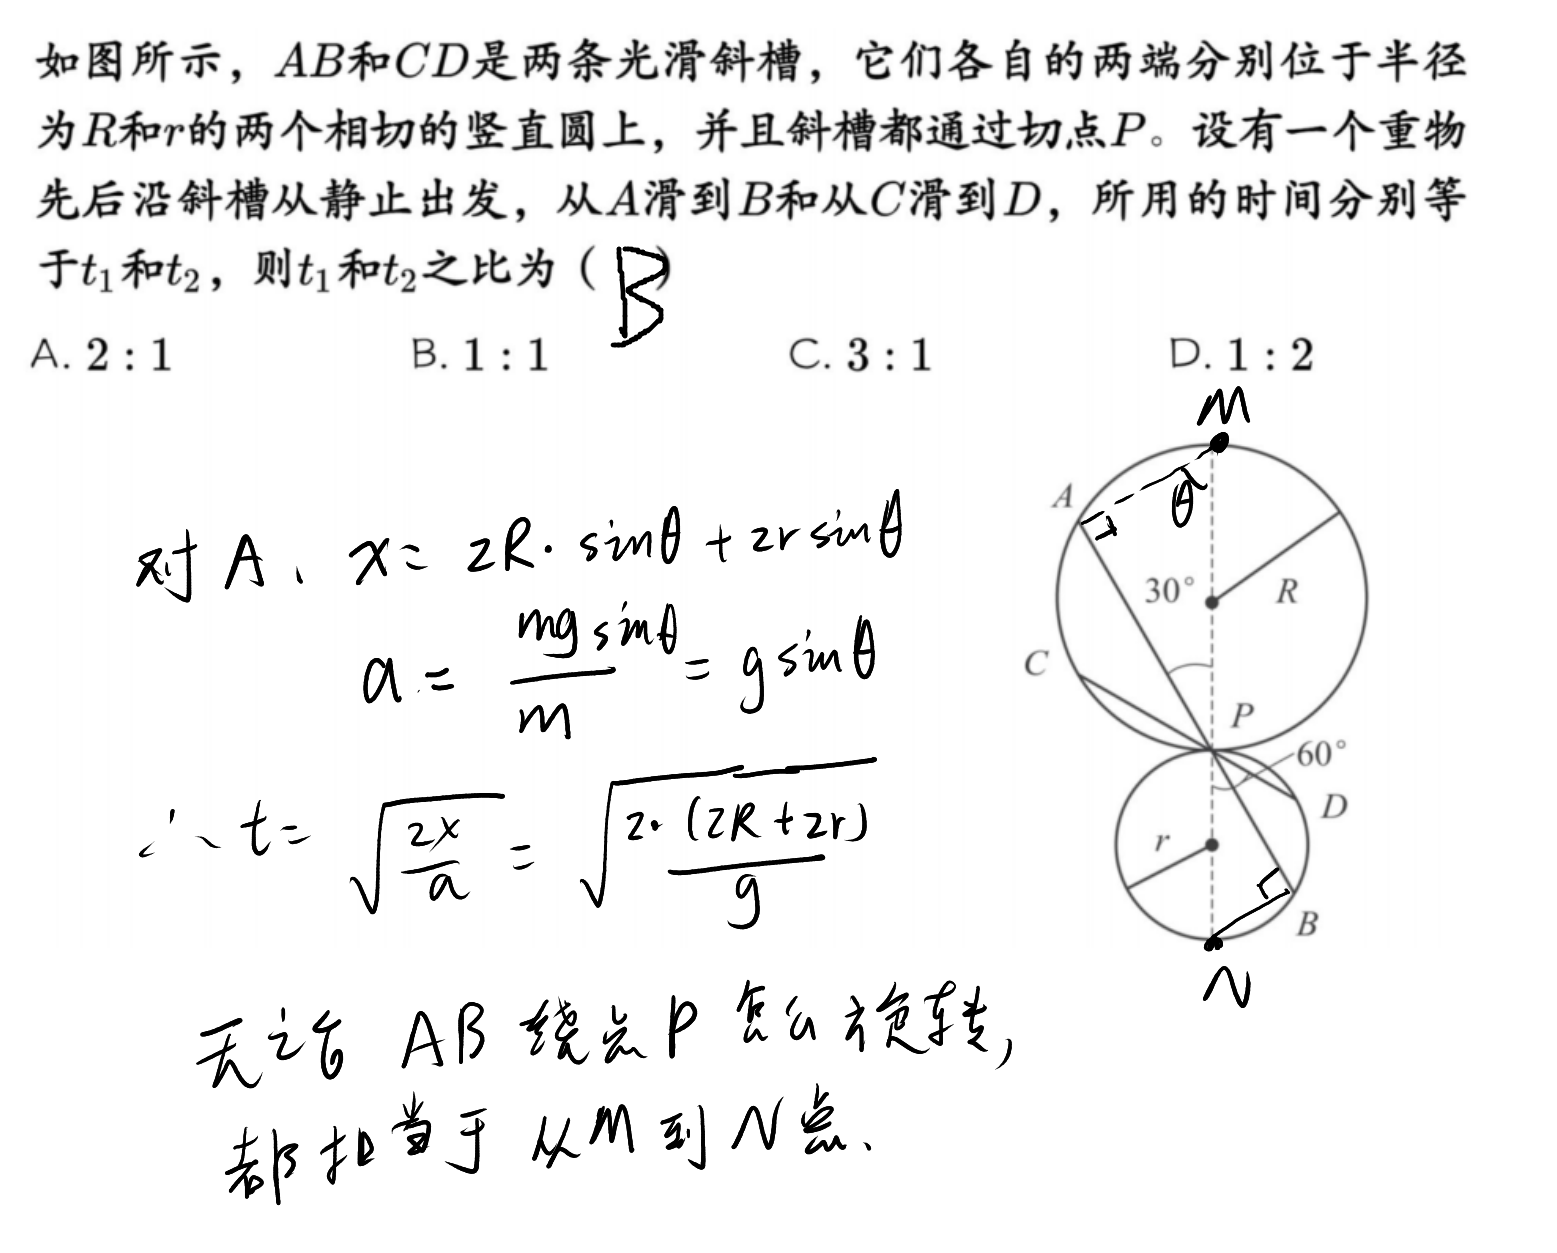 如图所示，AB和CD是两条光滑斜槽，它们各自的两端分别位于半径
为R和r的两个相切的竖直圆上，并且斜槽都通过切点P。设有一个重物
先后沿斜槽从静止出发，从A滑到B和从C滑到D，所用的时间分别等
于t₁和t₂，则t₁和t₂之比为（ B ）
A. 2 : 1 B. 1 : 1 C. 3 : 1 D. 1 : 2
M
A
θ
30°
R
C
P
60°
D
r
B
N
对A、x = 2R·sinθ + 2r sinθ
a = mg sinθ / m = g sinθ
∴、t = √(2x/a) = √(2·(2R+2r)/g)
无论 AB 绕点 P 怎么旋转,
都相当于 从M 到 N点、